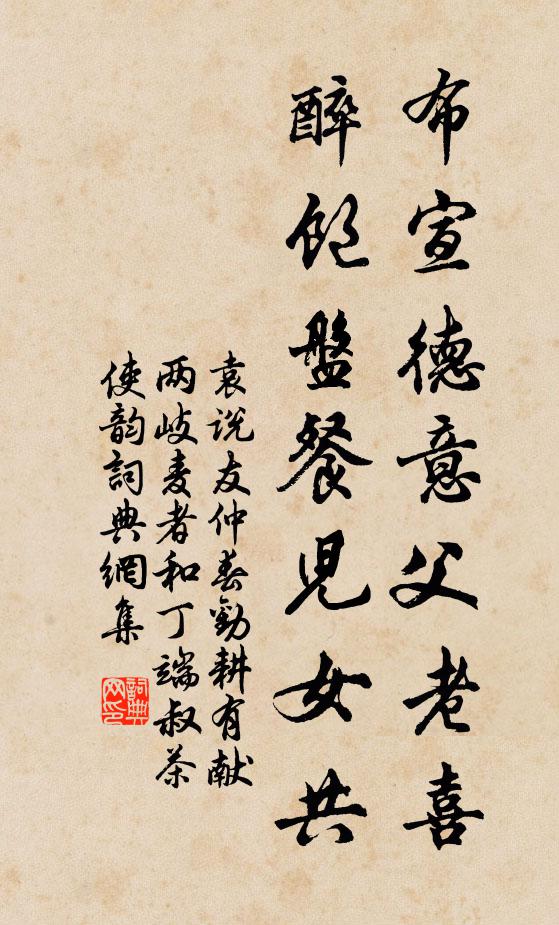 布宣德意父老喜
醉飽盤餐児女共
袁说友仲春勸耕有献
两岐麦者和丁端叔茶
使韵詞典網集
詞典网印